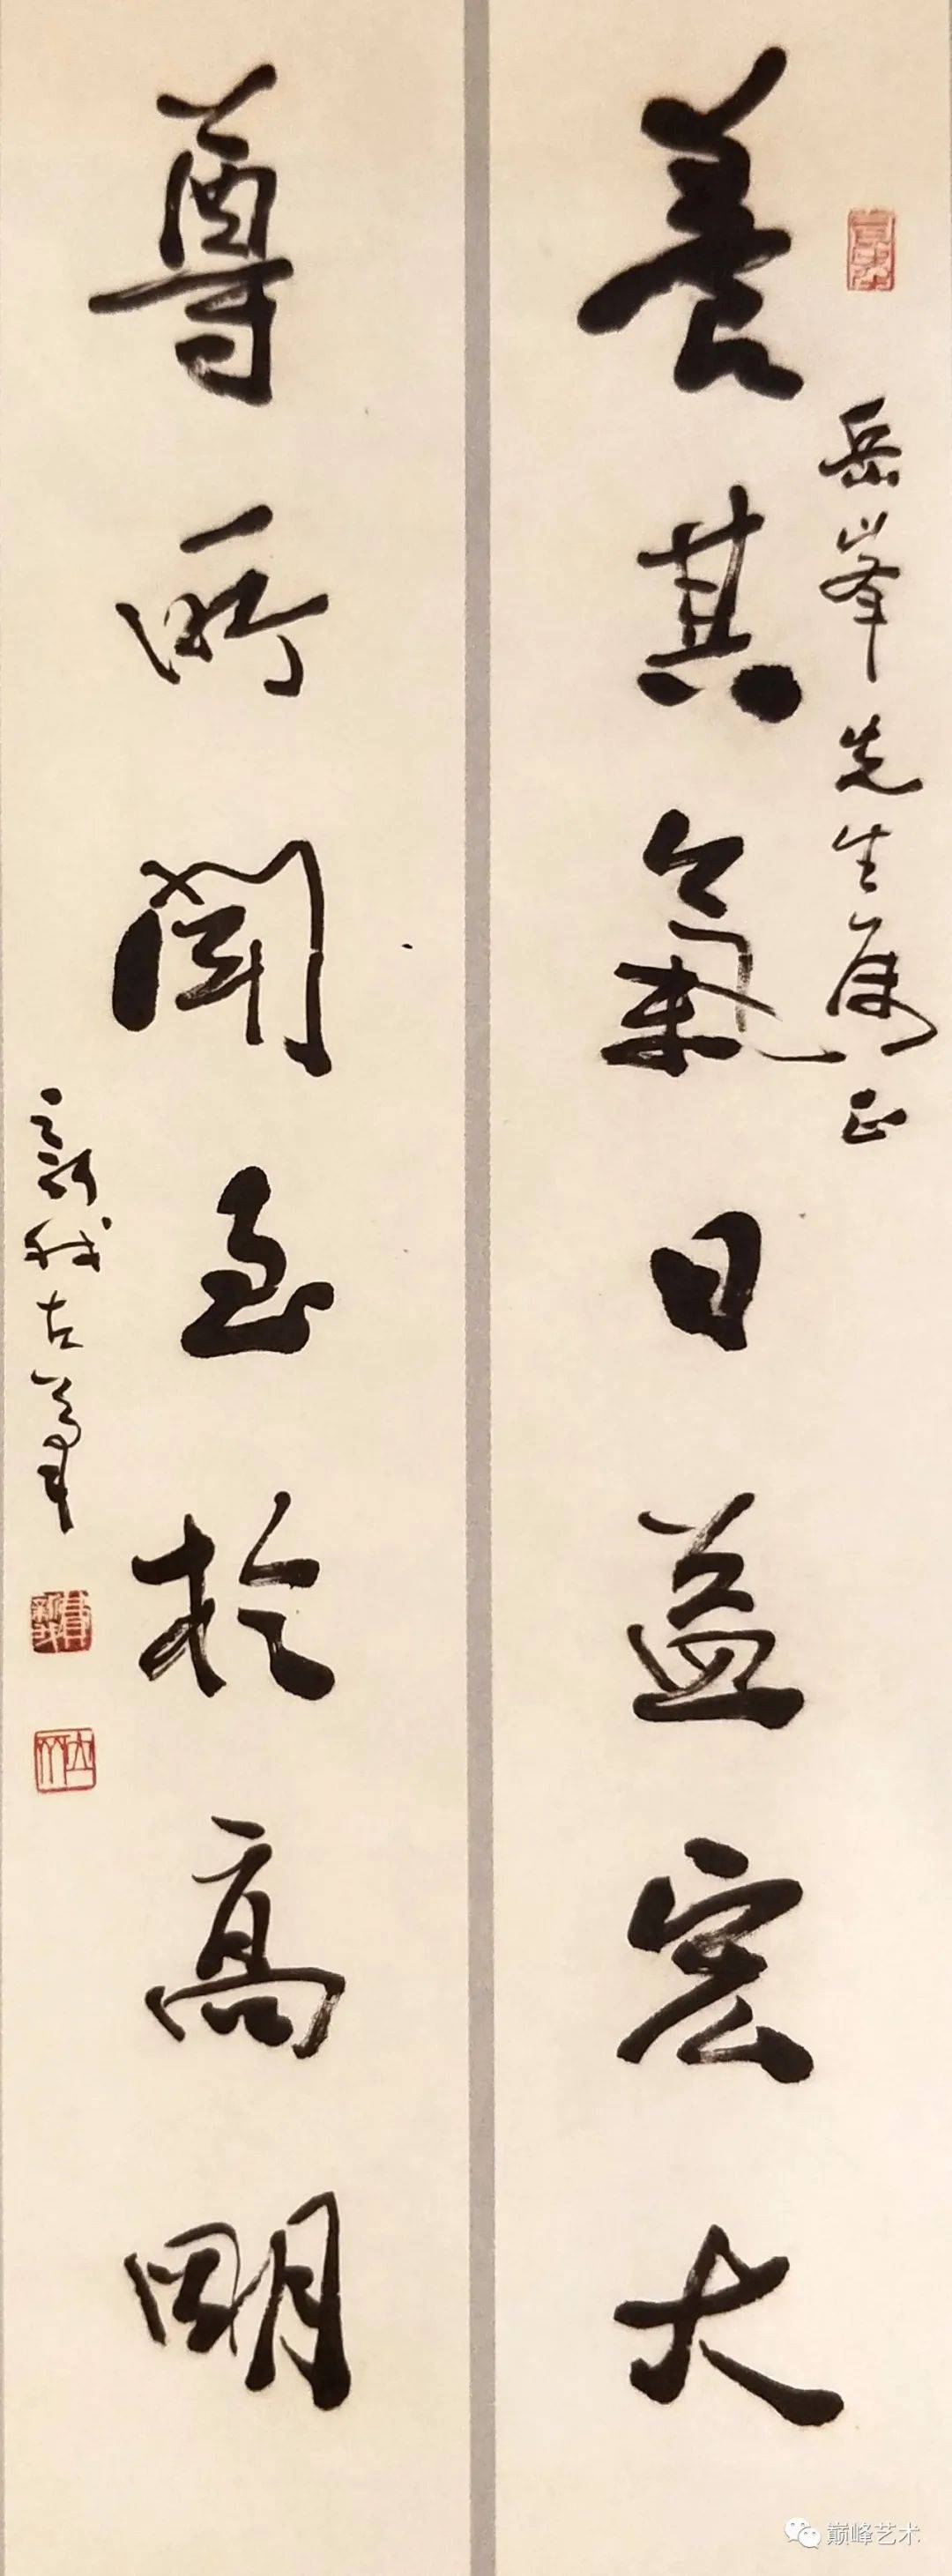 岳峯先生属正
養其氣日益宏大
尊所聞至於高明
新我左筆
巅峰艺术